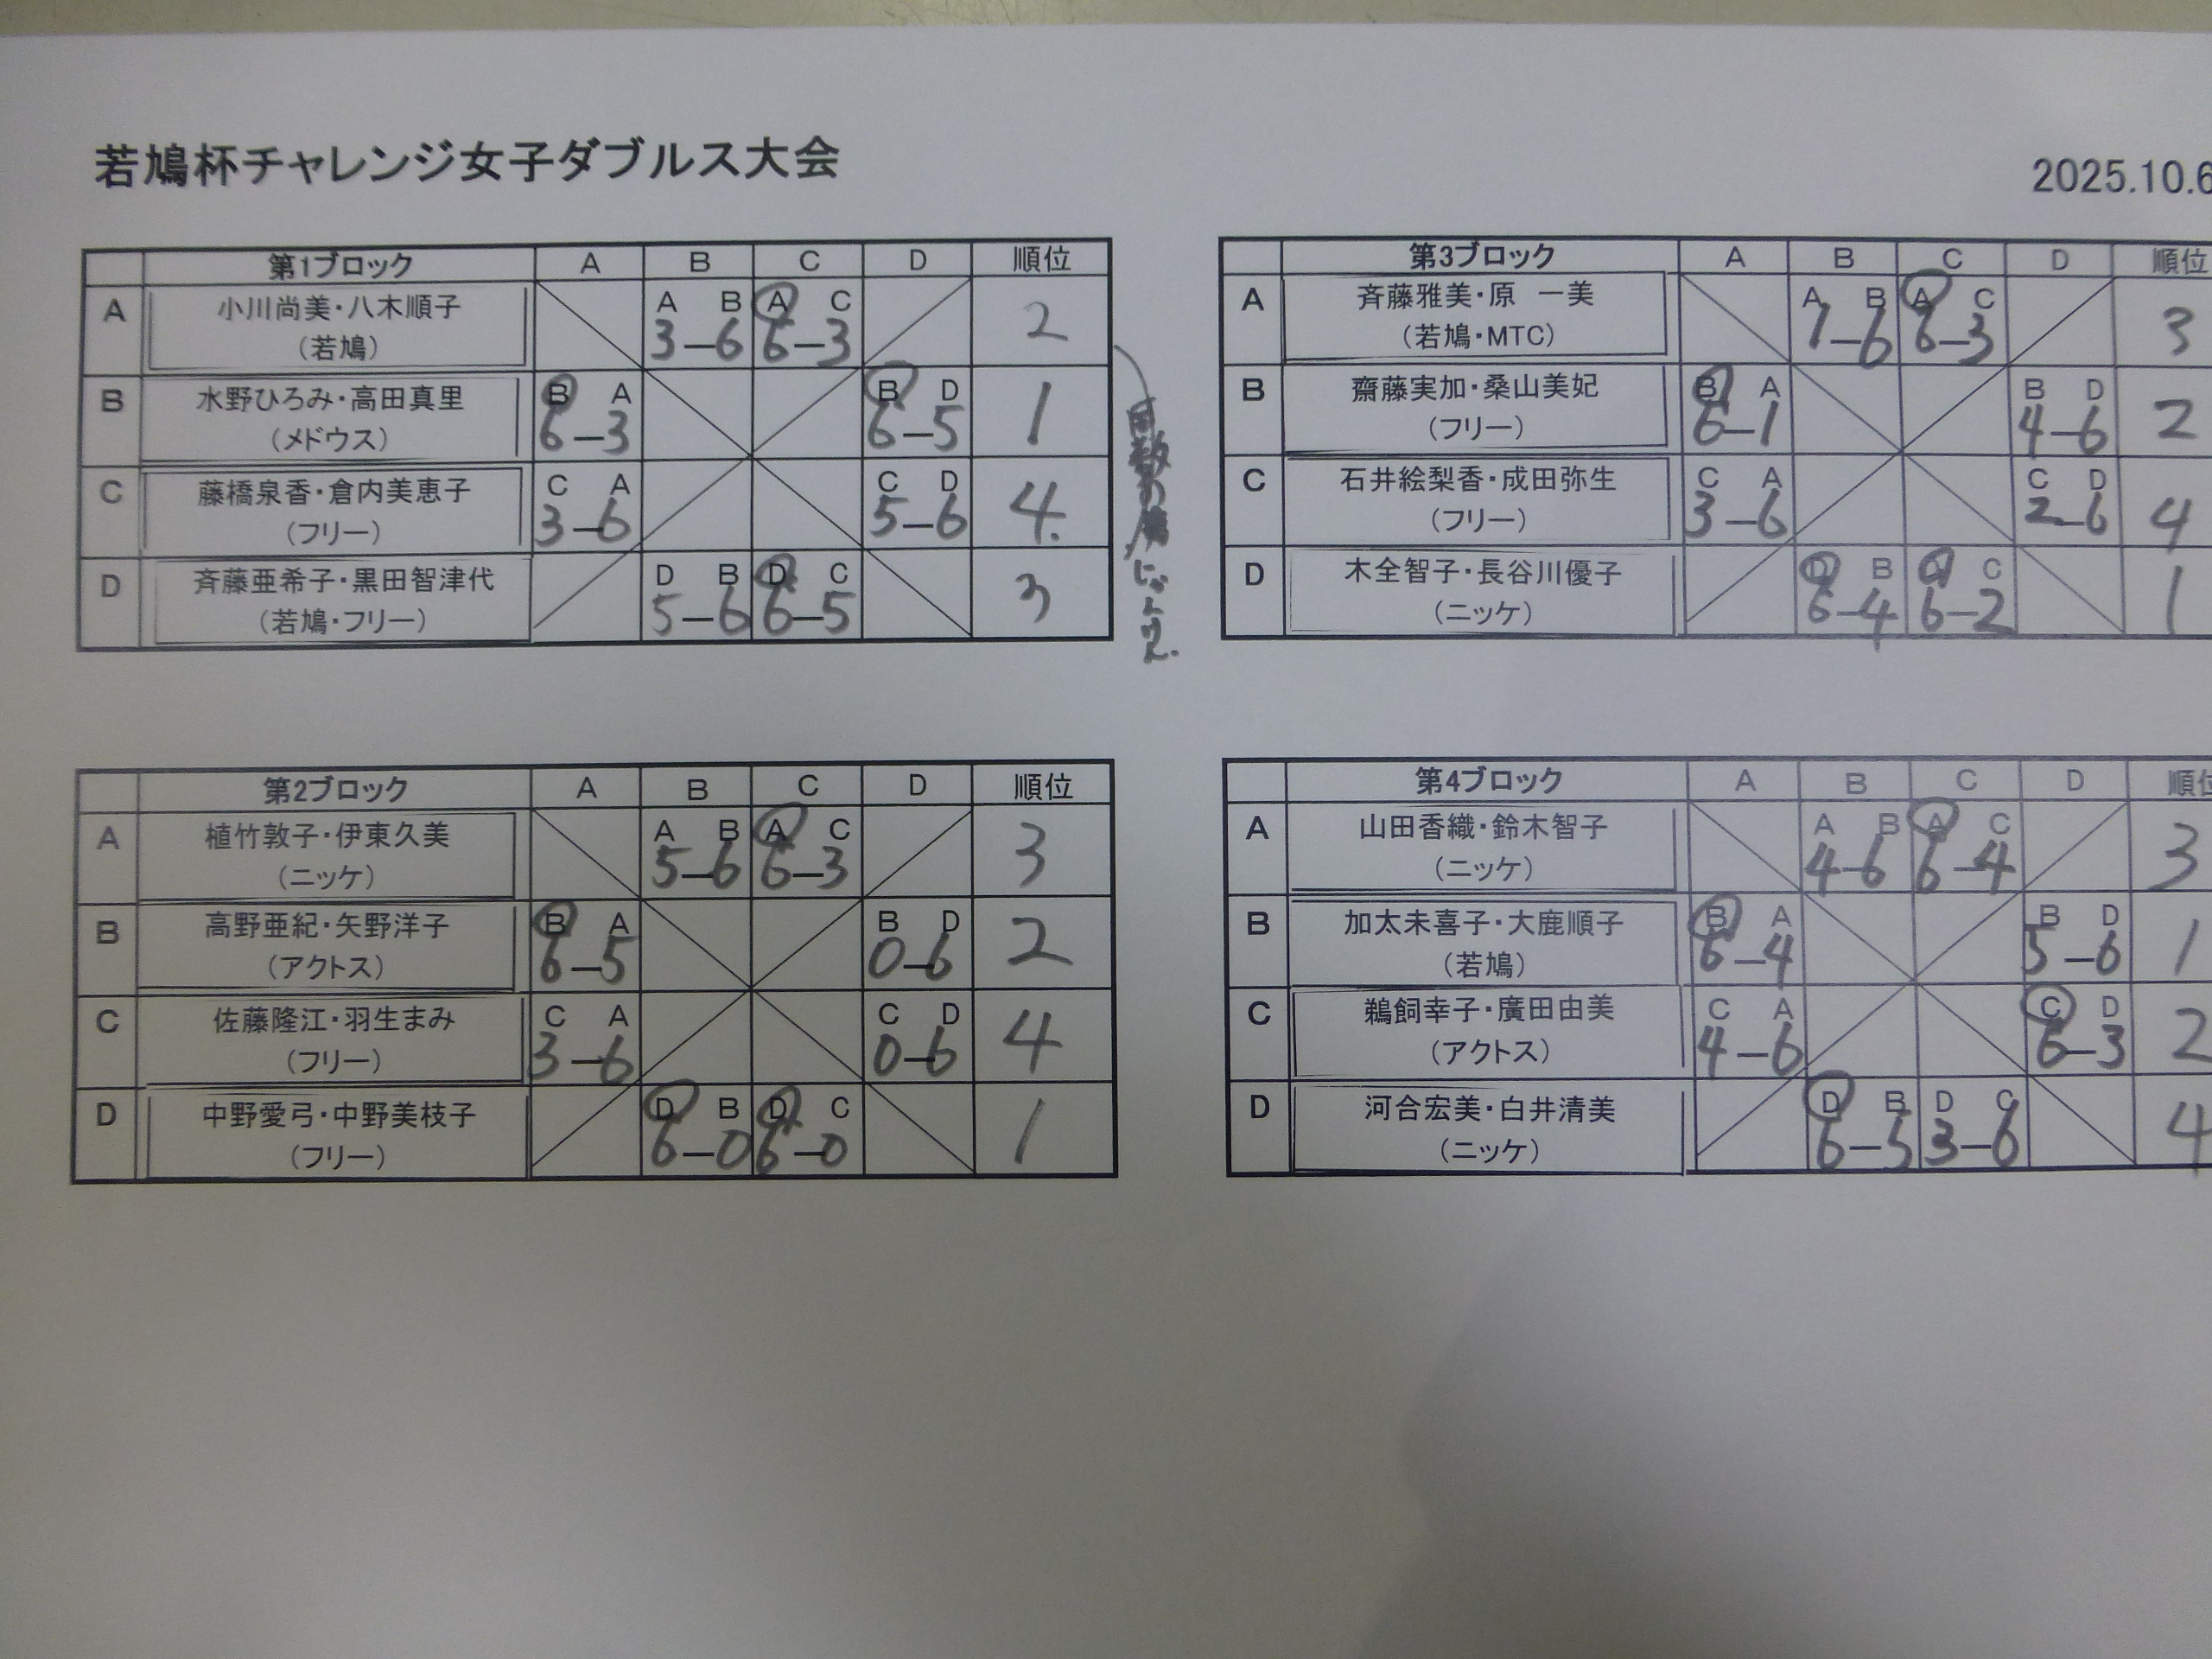 若鳩杯チャレンジ女子ダブルス大会
2025.10.6
第1ブロック A B C D 順位
A 小川尚美・八木順子 A B A C
(若鳩) 3-6 6-3 2
B 水野ひろみ・高田真里 B A B D
(メドウス) 6-3 6-5 1
C 藤橋泉香・倉内美恵子 C A C D
(フリー) 3-6 5-6 4
D 斉藤亜希子・黒田智津代 D B D C
(若鳩・フリー) 5-6 6-5 3
第3ブロック A B C D 順位
A 斉藤雅美・原 一美 A B A C
(若鳩・MTC) 1-6 6-3 3
B 齋藤実加・桑山美妃 B A B D
(フリー) 6-1 4-6 2
C 石井絵梨香・成田弥生 C A C D
(フリー) 3-6 2-6 4
D 木全智子・長谷川優子 D B C
(ニッケ) 6-4 6-2 1
第2ブロック A B C D 順位
A 植竹敦子・伊東久美 A B A C
(ニッケ) 5-6 6-3 3
B 高野亜紀・矢野洋子 B A B D
(アクトス) 6-5 0-6 2
C 佐藤隆江・羽生まみ C A C D
(フリー) 3-6 0-6 4
D 中野愛弓・中野美枝子 D B D C
(フリー) 6-0 6-0 1
第4ブロック A B C D 順位
A 山田香織・鈴木智子 A B A C
(ニッケ) 4-6 6-4 3
B 加太未喜子・大鹿順子 B A B D
(若鳩) 6-4 5-6 1
C 鵜飼幸子・廣田由美 C A C D
(アクトス) 4-6 6-3 2
D 河合宏美・白井清美 D B D C
(ニッケ) 6-5 3-6 4